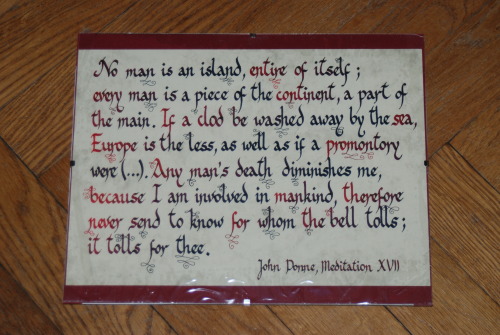 No man is an island, entire of itself;
every man is a piece of the continent, a part of
the main. If a clod be washed away by the sea,
Europe is the less, as well as if a promontory
were (...). Any man's death diminishes me,
because I am involved in mankind, therefore
never send to know for whom the bell tolls;
it tolls for thee.
John Donne, Meditation XVII